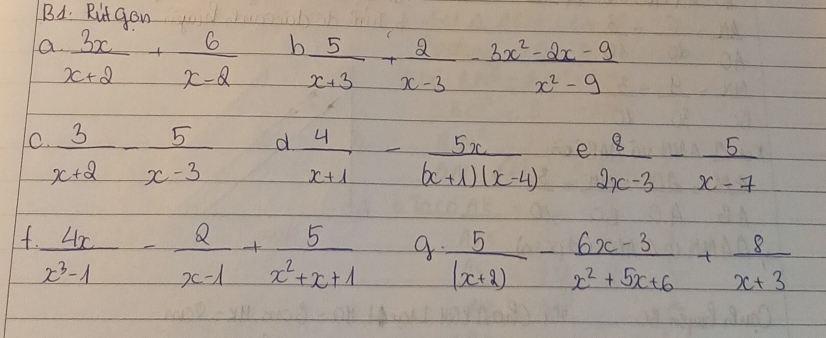 B1. Rút gọn
a. 3x/(x+2) + 6/(x-2) b 5/(x+3) + 2/(x-3) - (3x² - 2x - 9)/(x² - 9)
c. 3/(x+2) - 5/(x-3) d 4/(x+1) - 5x/((x+1)(x-4)) e. 8/(2x-3) - 5/(x-7)
f. 4x/(x³-1) - 2/(x-1) + 5/(x²+x+1) g. 5/(x+2) - (6x-3)/(x²+5x+6) + 8/(x+3)